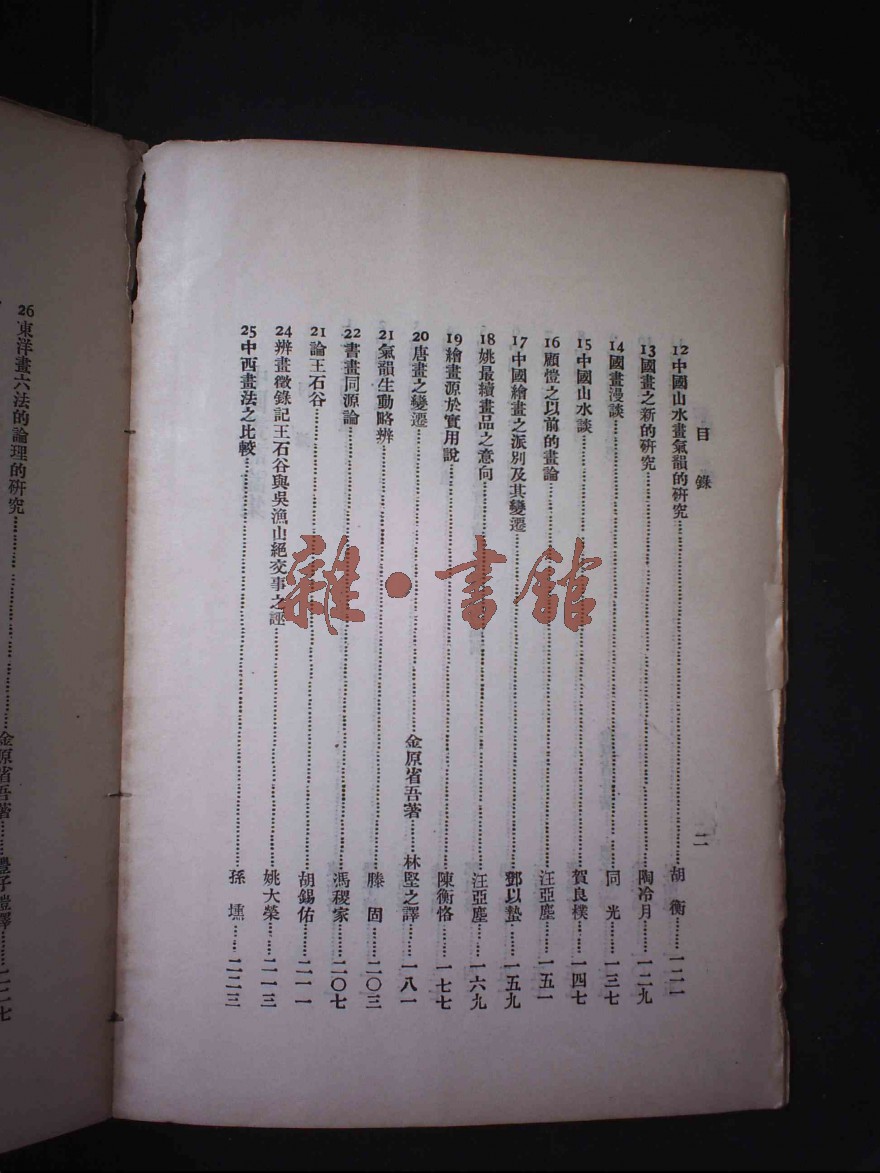 目錄
二
12中國山水畫氣韻的研究……胡衡……一二一
13國畫之新的研究……陶冷月……一二九
14國畫漫談……同光……一三七
15中國山水談……賀良樸……一四七
16顧愷之以前的畫論……汪亞塵……一五一
17中國繪畫之派別及其變遷……鄧以蟄……一五九
18姚最續畫品之意向……汪亞塵……一六九
19繪畫源於實用說……陳衡恪……一七七
20唐畫之變遷……金原省吾著……林堅之譯……一八一
21氣韻生動略辨……滕固……二〇三
22書畫同源論……馮稷家……二〇七
21論王石谷……胡錫佑……二一一
24辨畫徵錄記王石谷與吳漁山絕交事之誣……姚大榮……二一三
25中西畫法之比較……孫壎……二二三
26東洋畫六法的論理的研究……金原省吾著……豐子愷譯……二二七
雜·書館